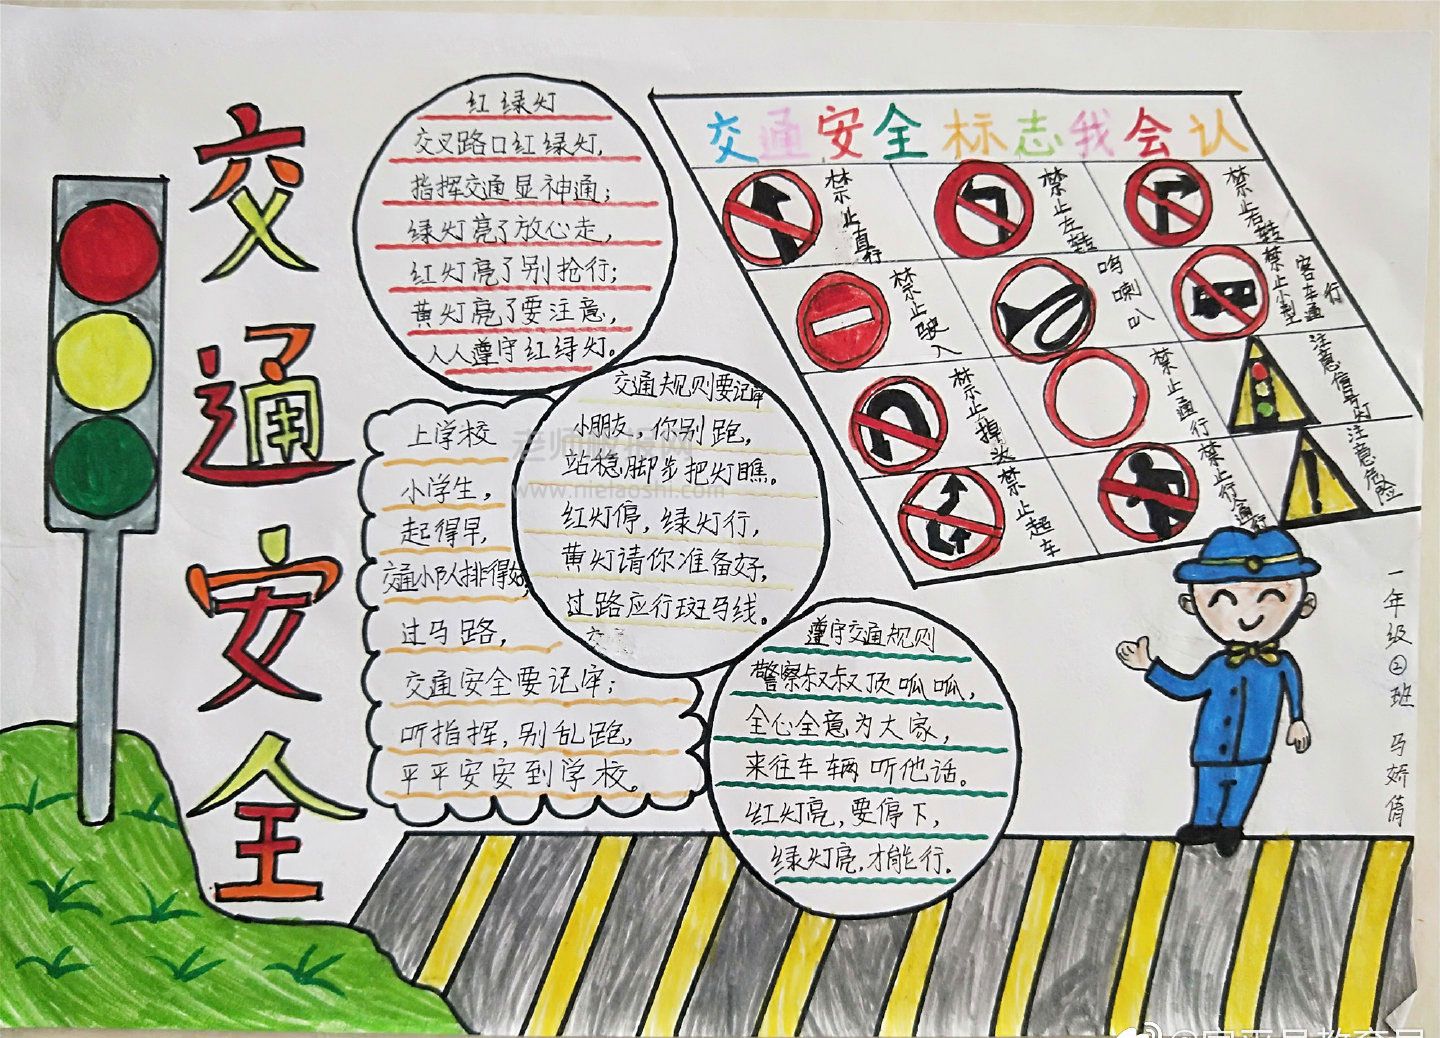 交通安全
红绿灯
交叉路口红绿灯,
指挥交通显神通;
绿灯亮了放心走,
红灯亮了别抢行;
黄灯亮了要注意,
人人遵守红绿灯。
上学校
小学生,
起得早,
交通小队排得好,
过马路,
交通安全要记牢;
听指挥,别乱跑,
平平安安到学校。
交通规则要记牢
小朋友,你别跑,
站稳脚步把灯瞧。
红灯停,绿灯行,
黄灯请你准备好,
过路应行斑马线。
遵守交通规则
警察叔叔顶呱呱,
全心全意为大家,
来往车辆听他话。
红灯亮,要停下,
绿灯亮,才能行.
交通安全标志我会认
禁止直行
禁止左转
禁止右转
禁止驶入
鸣喇叭
禁止小型客车通行
禁止掉头
禁止通行
注意信号灯
禁止超车
禁止行人通行
注意危险
一年级②班
www.nielaoshi.com